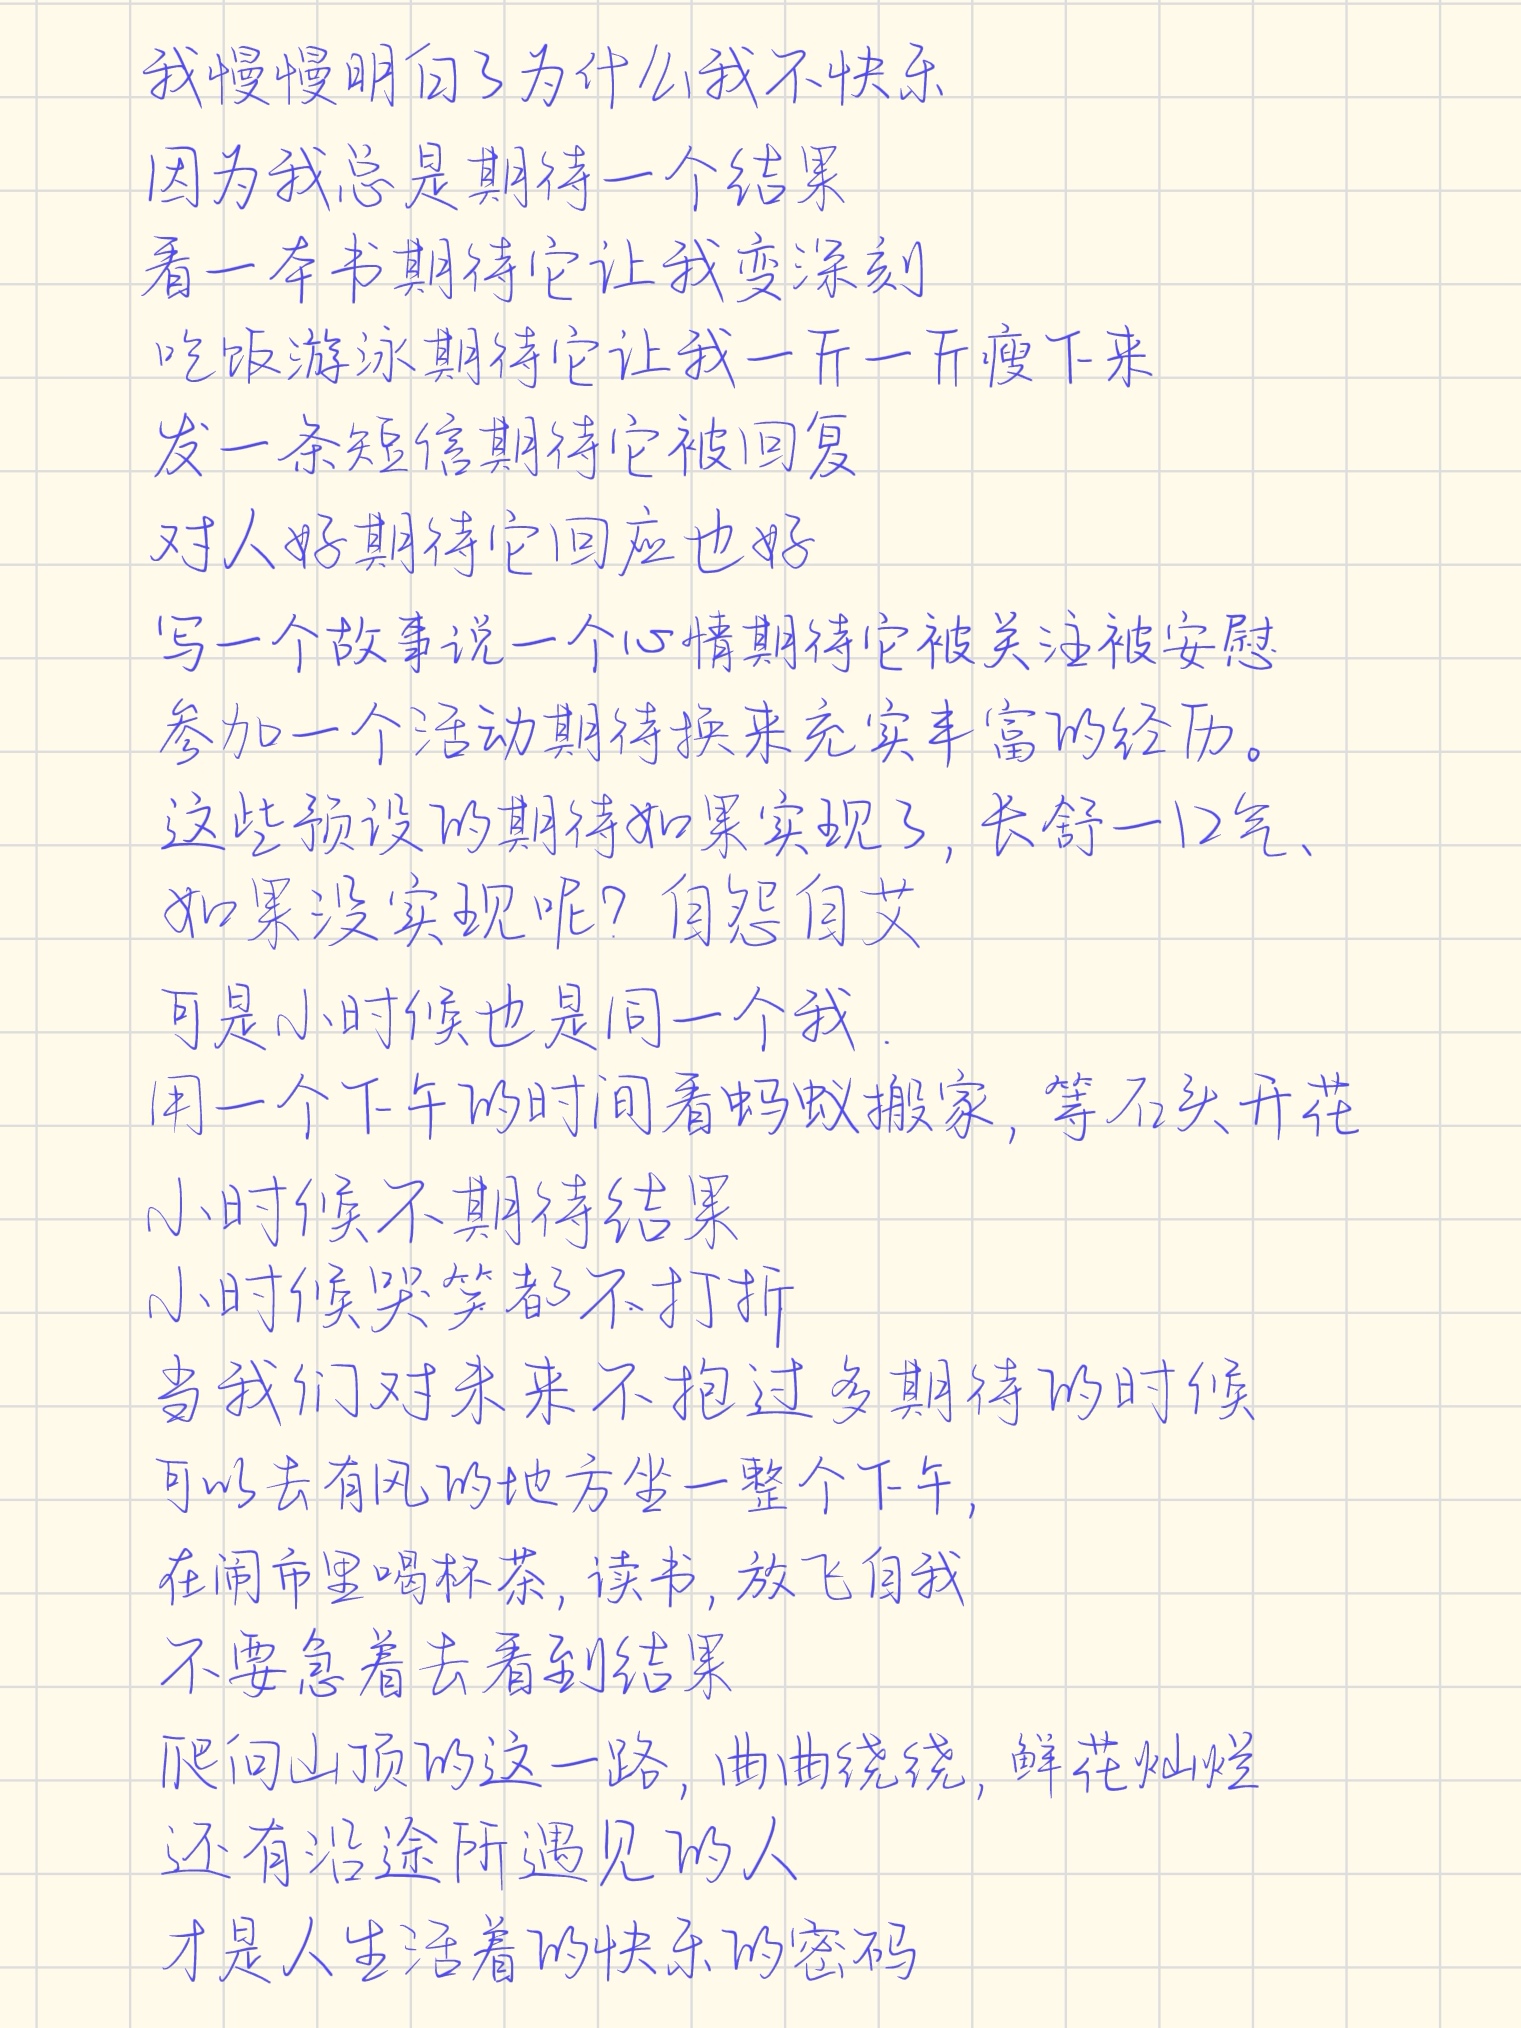 我慢慢明白了为什么我不快乐
因为我总是期待一个结果
看一本书期待它让我变深刻
吃饭游泳期待它让我一斤一斤瘦下来
发一条短信期待它被回复
对人好期待它回应也好
写一个故事说一个心情期待它被关注被安慰
参加一个活动期待换来充实丰富的经历。
这些预设的期待如果实现了,长舒一口气、
如果没实现呢?自怨自艾
可是小时候也是同一个我.
用一个下午的时间看蚂蚁搬家,等石头开花
小时候不期待结果
小时候哭笑都不打折
当我们对未来不抱过多期待的时候
可以去有风的地方坐一整个下午,
在闹市里喝杯茶,读书,放飞自我
不要急着去看到结果
爬向山顶的这一路,曲曲绕绕,鲜花灿烂
还有沿途所遇见的人
才是人生活着的快乐的密码